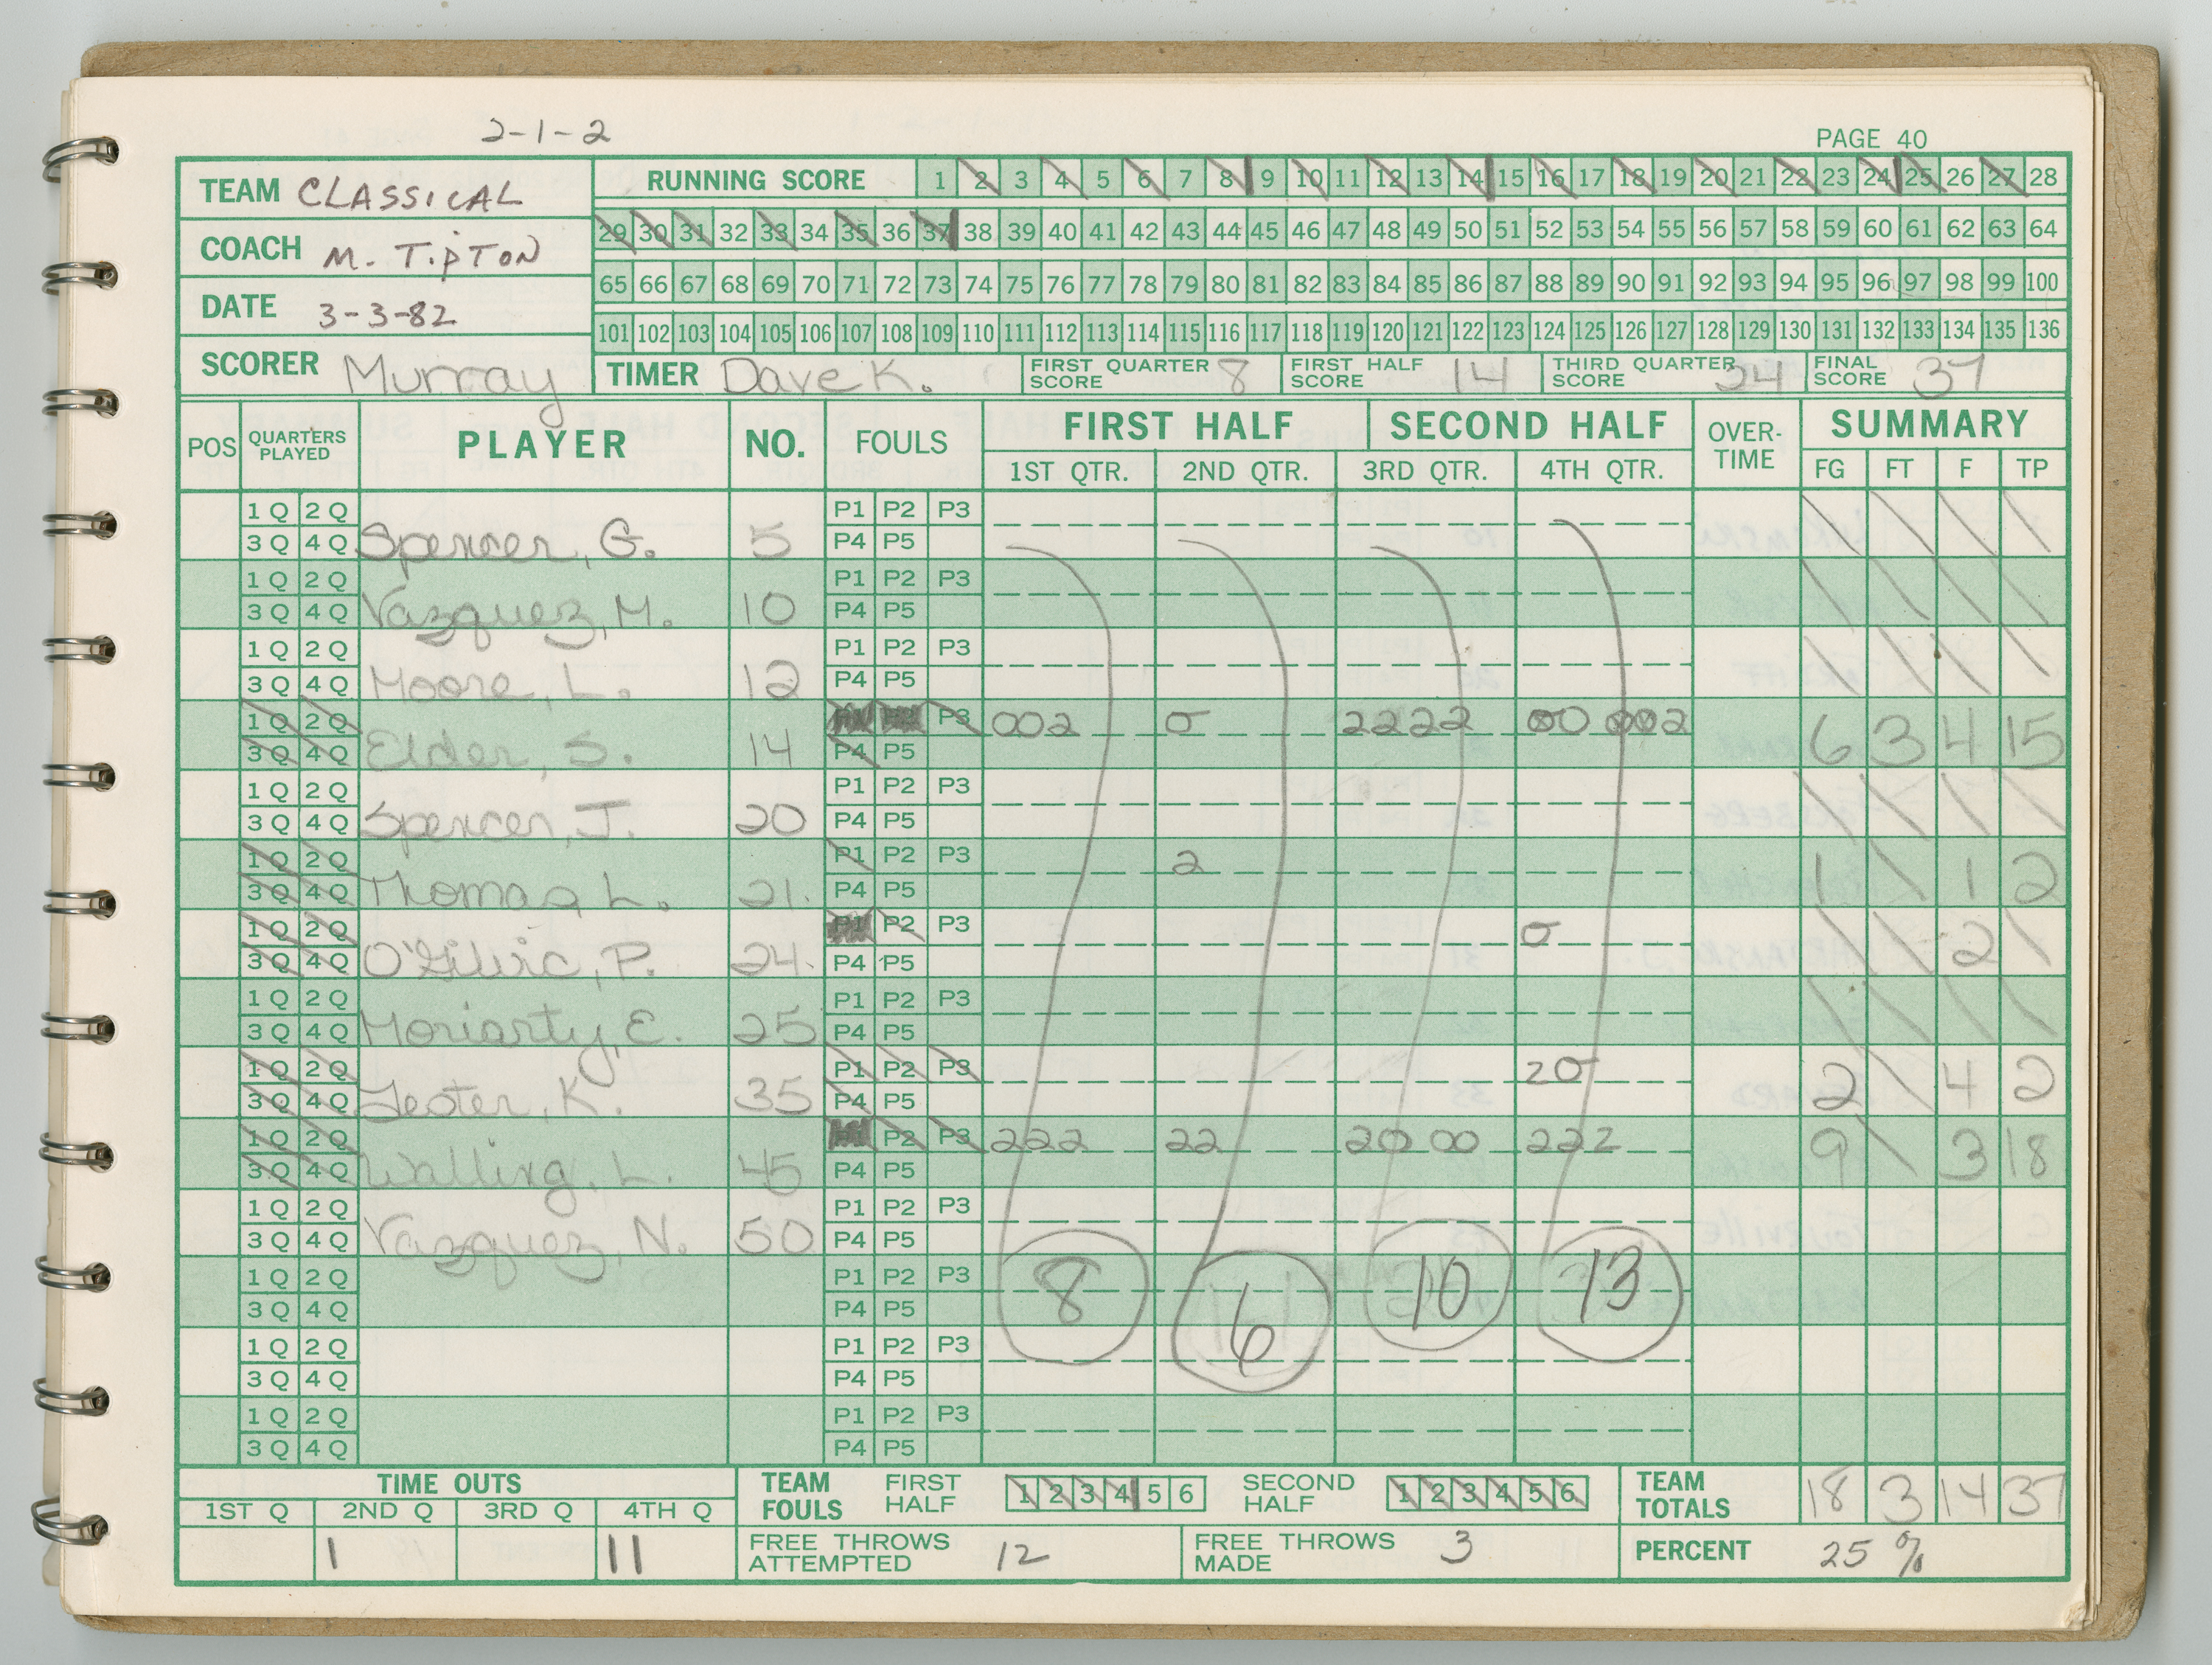 2-1-2
PAGE 40
TEAM CLASSICAL
RUNNING SCORE 1 2 3 4 5 6 7 8 9 10 11 12 13 14 15 16 17 18 19 20 21 22 23 24 25 26 27 28
COACH M. TIPTON
29 30 31 32 33 34 35 36 37 38 39 40 41 42 43 44 45 46 47 48 49 50 51 52 53 54 55 56 57 58 59 60 61 62 63 64
DATE 3-3-82
65 66 67 68 69 70 71 72 73 74 75 76 77 78 79 80 81 82 83 84 85 86 87 88 89 90 91 92 93 94 95 96 97 98 99 100
101 102 103 104 105 106 107 108 109 110 111 112 113 114 115 116 117 118 119 120 121 122 123 124 125 126 127 128 129 130 131 132 133 134 135 136
SCORER Murray TIMER Dave K. FIRST QUARTER SCORE 8 FIRST HALF SCORE 14 THIRD QUARTER SCORE 24 FINAL SCORE 37
POS QUARTERS PLAYED PLAYER NO. FOULS FIRST HALF SECOND HALF OVER-TIME SUMMARY
1ST QTR. 2ND QTR. 3RD QTR. 4TH QTR. FG FT F TP
1 Q 2 Q P1 P2 P3
3 Q 4 Q Spencer, G. 5 P4 P5
1 Q 2 Q P1 P2 P3
3 Q 4 Q Vazquez, M. 10 P4 P5
1 Q 2 Q P1 P2 P3
3 Q 4 Q Moore, L. 12 P4 P5
1 Q 2 Q P3 002 0 2222 00 002
3 Q 4 Q Elder, S. 14 P4 P5 6 3 4 15
1 Q 2 Q P1 P2 P3
3 Q 4 Q Spencer, J. 20 P4 P5
1 Q 2 Q P1 P2 P3 2
3 Q 4 Q Thomas, L. 21 P4 P5 1 1 2
1 Q 2 Q P1 P2 P3 0
3 Q 4 Q O'Gilvie, P. 24 P4 P5 2
1 Q 2 Q P1 P2 P3
3 Q 4 Q Moriarty, E. 25 P4 P5
1 Q 2 Q P1 P2 P3 20
3 Q 4 Q Lester, K. 35 P4 P5 2 4 2
1 Q 2 Q P2 P3 222 22 20 00 222
3 Q 4 Q Walling, L. 45 P4 P5 9 3 18
1 Q 2 Q P1 P2 P3
3 Q 4 Q Vazquez, N. 50 P4 P5
1 Q 2 Q P1 P2 P3 8 6 10 13
3 Q 4 Q P4 P5
1 Q 2 Q P1 P2 P3
3 Q 4 Q P4 P5
1 Q 2 Q P1 P2 P3
3 Q 4 Q P4 P5
TIME OUTS TEAM FOULS FIRST HALF 1 2 3 4 5 6 SECOND HALF 1 2 3 4 5 6 TEAM TOTALS 18 3 14 37
1ST Q 2ND Q 3RD Q 4TH Q
1 11 FREE THROWS ATTEMPTED 12 FREE THROWS MADE 3 PERCENT 25 %